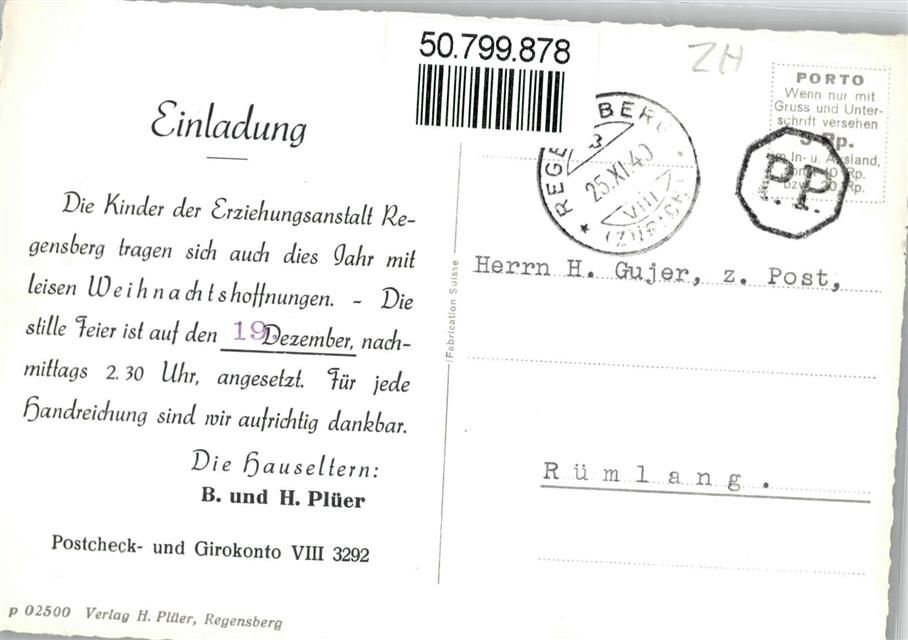 50.799.878
ZH
Einladung
Die Kinder der Erziehungsanstalt Re-
gensberg tragen sich auch dies Jahr mit
leisen Weihnachtshoffnungen. - Die
stille Feier ist auf den 19. Dezember, nach-
mittags 2.30 Uhr, angesetzt. Für jede
Handreichung sind wir aufrichtig dankbar.
Die Hauseltern:
B. und H. Plüer
Postcheck- und Girokonto VIII 3292
p 02500 Verlag H. Plüer, Regensberg
Fabrication Suisse
REGENSBERG
3
25.XI.40
VIII
(ZÜRICH)
PORTO
Wenn nur mit
Gruss und Unter-
schrift versehen
5 Rp.
im In- u. Ausland,
Rp.
Rp.
P.P.
Herrn H. Gujer, z. Post,
Rümlang.